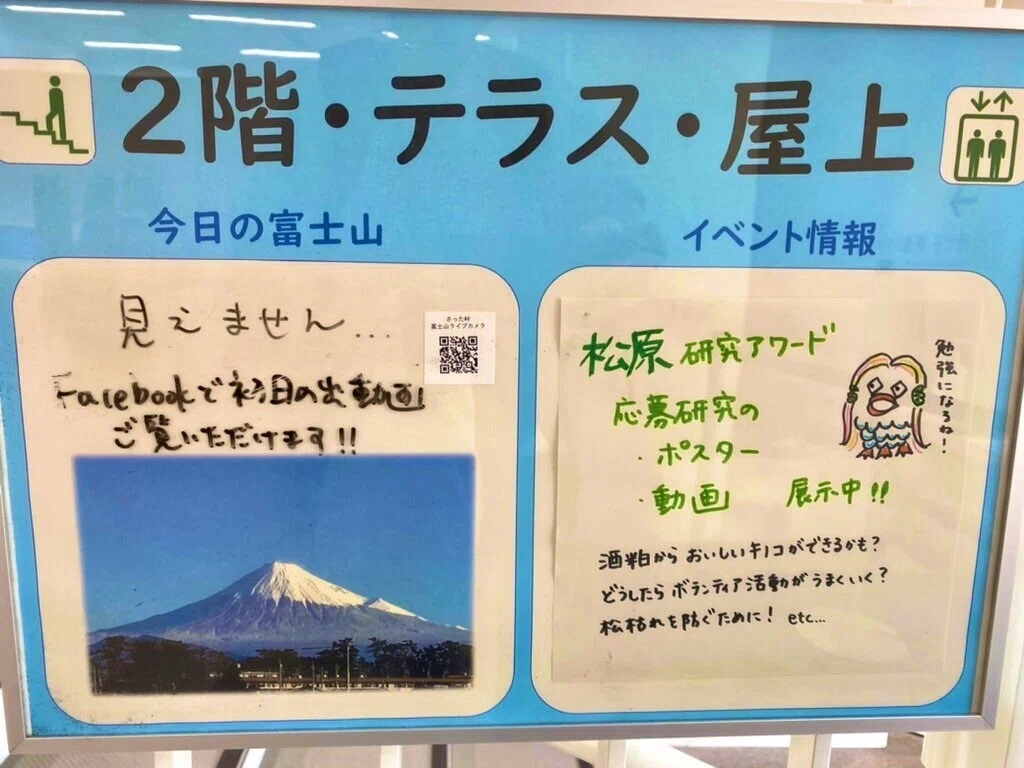 2階・テラス・屋上
今日の富士山
見えません…
さった峠
富士山ライブカメラ
Facebookで初日の出動画
ご覧いただけます!!
イベント情報
松原研究アワード
応募研究の
・ポスター
・動画 展示中!!
勉強になるね!
酒粕からおいしいキノコができるかも?
どうしたらボランティア活動がうまくいく?
松枯れを防ぐために! etc...